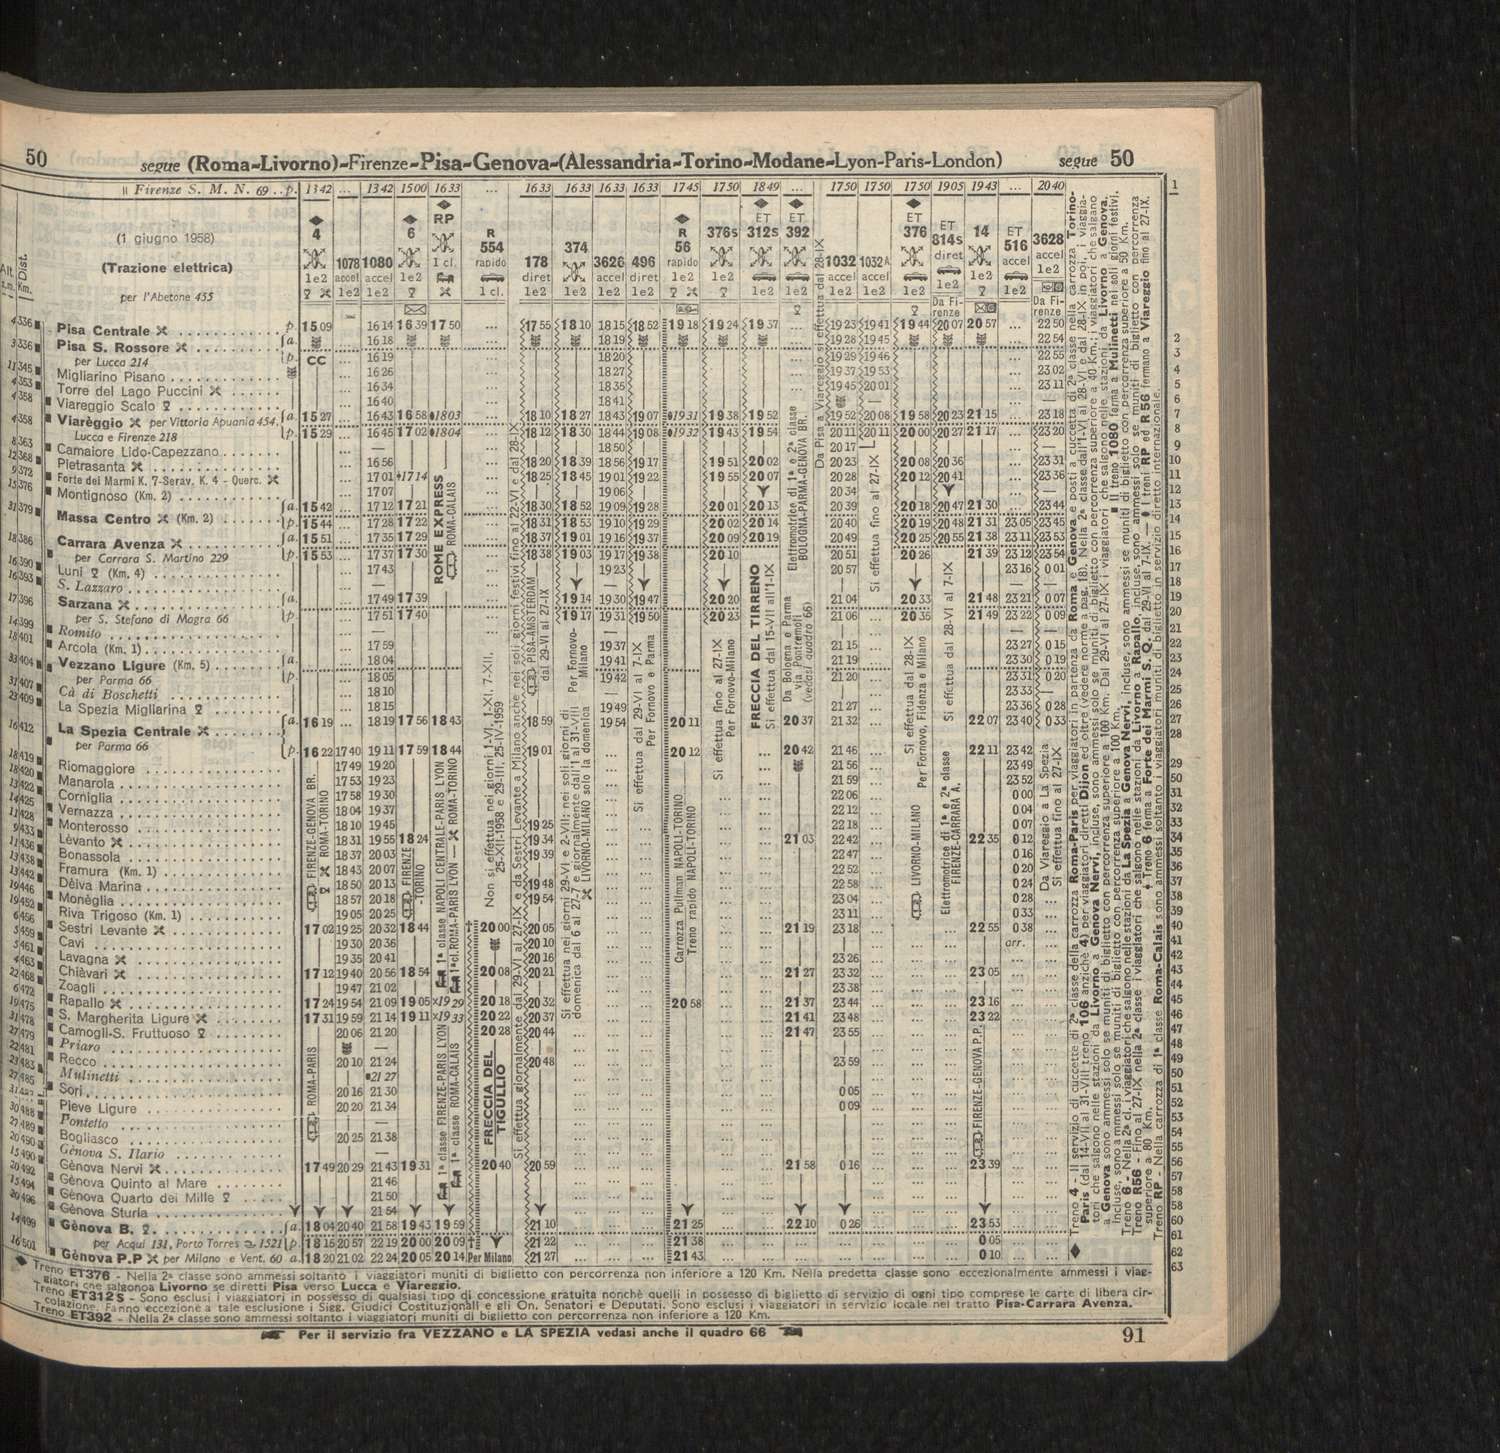 50 segue (Roma-Livorno)-Firenze-Pisa-Genova-(Alessandria-Torino-Modane-Lyon-Paris-London) segue 50
Firenze S. M. N. 69 .. p. 1342 ... 1342 1500 1633 ... 1633 1633 1633 1633 1745 1750 1849 ... 1750 1750 1750 1905 1943 ... 2040 1
(1 giugno 1958)
(Trazione elettrica)
per l'Abetone 455
Alt. Dist. Km.
4 1e2
1078 accel 1e2
1080 accel 1e2
6 1e2
RP 1 cl.
R 554 rapido 1 cl.
178 diret 1e2
374 1e2
3626 accel 1e2
496 diret 1e2
R 56 rapido 1e2
376s 1e2
ET 312s 1e2
ET 392 1e2
1032 accel 1e2
1032A accel 1e2
ET 376 1e2
ET 814s diret 1e2 Da Firenze
14 1e2
ET 516 accel 1e2
3628 accel 1e2 Da Firenze
Pisa Centrale p. 15 09 ... 16 14 16 39 17 50 ... 17 55 18 10 18 15 18 52 19 18 19 24 19 37 19 23 19 41 19 44 20 07 20 57 ... 22 50
Pisa S. Rossore a. 16 18 18 19 19 28 19 45 22 54 2
per Lucca 214 p. CC 16 19 18 20 19 29 19 46 22 55 3
Migliarino Pisano 16 26 18 27 19 37 19 53 23 02 4
Torre del Lago Puccini 16 34 18 35 19 45 20 01 23 11 5
Viareggio Scalo 16 40 18 41 6
Viarèggio per Vittoria Apuania 454. a. 15 27 16 43 16 58 1803 18 10 18 27 18 43 19 07 1931 19 38 19 52 19 52 20 08 19 58 20 23 21 15 23 18 7
Lucca e Firenze 218 p. 15 29 16 45 17 02 1804 18 12 18 30 18 44 19 08 1932 19 43 19 54 20 11 20 11 20 00 20 27 21 17 23 20 8
Camaiore Lido-Capezzano 18 50 20 17 9
Pietrasanta 16 56 18 20 18 39 18 56 19 17 19 51 20 02 20 23 20 08 20 36 23 31 10
Forte dei Marmi K. 7-Serav. K. 4 - Querc. 17 01 1714 18 25 18 45 19 01 19 22 19 55 20 07 20 28 20 12 20 41 23 36 11
Montignoso (Km. 2) 17 07 19 06 20 34 12
Massa Centro (Km. 2) a. 15 42 17 12 17 21 18 30 18 52 19 09 19 28 20 01 20 13 20 39 20 18 20 47 21 30 23 44 13
p. 15 44 17 28 17 22 18 31 18 53 19 10 19 29 20 02 20 14 20 40 20 19 20 48 21 31 23 05 23 45 14
Carrara Avenza a. 15 51 17 35 17 29 18 37 19 01 19 16 19 37 20 09 20 19 20 49 20 25 20 55 21 38 23 11 23 53 15
per Carrara S. Martino 229 p. 15 53 17 37 17 30 18 38 19 03 19 17 19 38 20 10 20 51 20 26 21 39 23 12 23 54 16
Luni (Km. 4) 17 43 19 23 20 57 23 16 0 01 17
S. Lazzaro 18
Sarzana a. 17 49 17 39 19 14 19 30 19 47 20 20 21 04 20 33 21 48 23 21 0 07 19
per S. Stefano di Magra 66 p. 17 51 17 40 19 17 19 31 19 50 20 23 21 06 20 35 21 49 23 22 0 09 20
Romito 21
Arcola (Km. 1) 17 59 19 37 21 15 23 27 0 15 22
Vezzano Ligure (Km. 5) a. 18 04 19 41 21 19 23 30 0 19 23
per Parma 66 p. 18 05 19 42 21 20 23 31 0 20 24
Cà di Boschetti 18 10 23 33 25
La Spezia Migliarina 18 15 19 49 21 27 23 36 0 28 26
La Spezia Centrale a. 16 19 ... 18 19 17 56 18 43 18 59 19 54 20 11 20 37 21 32 22 07 23 40 0 33 27
per Parma 66 p. 16 22 17 40 19 11 17 59 18 44 19 01 20 12 20 42 21 46 22 11 23 42 28
Riomaggiore 17 49 19 20 21 56 23 49 29
Manarola 17 53 19 23 21 59 23 52 30
Corniglia 17 58 19 30 22 06 0 00 31
Vernazza 18 04 19 37 22 12 0 04 32
Monterosso 18 10 19 45 19 25 22 18 0 07 33
Lèvanto 18 31 19 55 18 24 19 34 21 03 22 42 22 35 0 12 34
Bonassola 18 37 20 03 19 39 22 47 0 16 35
Framura (Km. 1) 18 43 20 07 22 52 0 20 36
Dèiva Marina 18 50 20 13 19 48 22 58 0 24 37
Monèglia 18 57 20 18 19 54 23 04 0 28 38
Riva Trigoso (Km. 1) 19 05 20 25 23 11 0 33 39
Sestri Levante 17 02 19 25 20 32 18 44 20 00 20 05 21 19 23 18 22 55 0 38 40
Cavi 19 30 20 36 20 10 arr. 41
Lavagna 19 35 20 41 20 16 23 26 42
Chiàvari 17 12 19 40 20 56 18 54 20 08 20 21 21 27 23 32 23 05 43
Zoagli 19 47 21 02 23 38 44
Rapallo 17 24 19 54 21 09 19 05 1929 20 18 20 32 20 58 21 37 23 44 23 16 45
S. Margherita Ligure 17 31 19 59 21 14 19 11 1933 20 22 20 37 21 41 23 48 23 22 46
Camogli-S. Fruttuoso 20 06 21 20 20 28 20 44 21 47 23 55 47
Priaro 48
Recco 20 10 21 24 20 48 23 59 49
Mulinetti 21 27 50
Sori 20 16 21 30 0 05 51
Pieve Ligure 20 20 21 34 0 09 52
Pontetto 53
Bogliasco 20 25 21 38 54
Gènova S. Ilario 55
Gènova Nervi 17 49 20 29 21 43 19 31 20 40 20 59 21 58 0 16 23 39 56
Gènova Quinto al Mare 21 46 57
Gènova Quarto dei Mille 21 50 58
Gènova Sturla 21 54 59
Gènova B. a. 18 04 20 40 21 58 19 43 19 59 21 10 21 25 22 10 0 26 23 53 60
per Acqui 131, Porto Torres 1521 p. 18 16 20 57 22 19 20 00 20 09 21 22 21 38 0 05 61
Gènova P.P per Milano e Vent. 60 a. 18 20 21 02 22 24 20 05 20 14 Per Milano 21 27 21 43 0 10 62
63
FIRENZE-GENOVA BR.
ROMA-TORINO
ROMA-PARIS
FIRENZE-TORINO
ROME EXPRESS
ROMA-CALAIS
1ª classe NAPOLI CENTRALE-PARIS LYON
1ª cl. ROMA-PARIS LYON — ROMA-TORINO
1ª classe FIRENZE-PARIS LYON
1ª classe ROMA-CALAIS
Non si effettua nei giorni 1-VI, 1-XI, 7-XII, 25-XII-1958 e 29-III, 25-IV-1959
FRECCIA DEL TIGULLIO
Si effettua giornalmente dal 29-VI al 27-IX e da Sestri Levante a Milano anche nei soli giorni festivi fino al 22-VI e dal 28-IX
PISA-AMSTERDAM dal 29-VI al 27-IX
Per Fornovo-Milano
Si effettua nei giorni 29-VI e 2-VII: nei soli giorni di domenica dal 6 al 27-7 e giornalmente dall'1 al 31-VIII
LIVORNO-MILANO solo la domenica
Si effettua dal 29-VI al 7-IX
Per Fornovo e Parma
Carrozza Pullman NAPOLI-TORINO
Treno rapido NAPOLI-TORINO
Si effettua fino al 27-IX
Per Fornovo-Milano
FRECCIA DEL TIRRENO
Si effettua dal 15-VII all'1-IX
Elettromotrice di 1ª e 2ª classe
BOLOGNA-PARMA-GENOVA BR.
Da Bologna e Parma via Pontremoli (vedasi quadro 66)
Da Pisa a Viareggio si effettua dal 28-IX
Si effettua fino al 27-IX
Si effettua dal 28-IX
Per Fornovo, Fidenza e Milano
LIVORNO-MILANO
Si effettua dal 28-VI al 7-IX
Elettromotrice di 1ª e 2ª classe FIRENZE-CARRARA A.
FIRENZE-GENOVA P.P.
Da Viareggio a La Spezia
Si effettua fino al 27-IX
Treno 4 - Il servizio di cuccette di 2ª classe della carrozza Roma-Paris per viaggiatori in partenza da Roma e Genova e posti a cuccetta di 2ª classe nella carrozza Torino-
Paris (dal 14-VII al 31-VIII treno 106 anzichè 4) per viaggiatori diretti Dijon ed oltre (vedere norme a pag. 18). Nella 2ª classe dall'1-VI al 28-VI e dal 28-IX in poi, i viaggia-
tori che salgono nelle stazioni da Livorno a Genova Nervi, incluse, sono ammessi solo se muniti di biglietto con percorrenza superiore a 40 Km.; i viaggiatori che salgono
a Genova sono ammessi solo se muniti di biglietto con percorrenza superiore a 100 Km. Dal 29-VI al 27-IX i viaggiatori che salgono nelle stazioni da Livorno a Genova.
incluse, sono ammessi solo se muniti di biglietto con percorrenza superiore a 100 Km. Il treno 1080 ferma a Mulinetti nei soli giorni festivi.
Treno 6 - Nella 2ª cl. i viaggiatori che salgono nelle stazioni da La Spezia a Genova Nervi, incluse, sono ammessi se muniti di biglietto con percorrenza superiore a 50 Km.
Treno R56 - Fino al 27-IX nella 2ª classe i viaggiatori che salgono nelle stazioni da Livorno a Rapallo, incluse, sono ammessi solo se muniti di biglietto con percorrenza
superiore a 80 Km. Treno 6 ferma a Forte dei Marmi S. Q. dal 29-VI al 7-IX. I treni RP ed R 56 fermano a Viareggio fino al 27-IX.
Treno RP - Nella carrozza di 1ª classe Roma-Calais sono ammessi soltanto i viaggiatori muniti di biglietto in servizio diretto internazionale.
Treno ET376 - Nella 2ª classe sono ammessi soltanto i viaggiatori muniti di biglietto con percorrenza non inferiore a 120 Km. Nella predetta classe sono eccezionalmente ammessi i viag-
giatori che salgono a Livorno se diretti Pisa verso Lucca e Viareggio.
Treno ET312S - Sono esclusi i viaggiatori in possesso di qualsiasi tipo di concessione gratuita nonchè quelli in possesso di biglietto di servizio di ogni tipo comprese le carte di libera cir-
colazione. Fanno eccezione a tale esclusione i Sigg. Giudici Costituzionali e gli On. Senatori e Deputati. Sono esclusi i viaggiatori in servizio locale nel tratto Pisa-Carrara Avenza.
Treno ET392 - Nella 2ª classe sono ammessi soltanto i viaggiatori muniti di biglietto con percorrenza non inferiore a 120 Km.
Per il servizio fra VEZZANO e LA SPEZIA vedasi anche il quadro 66
91